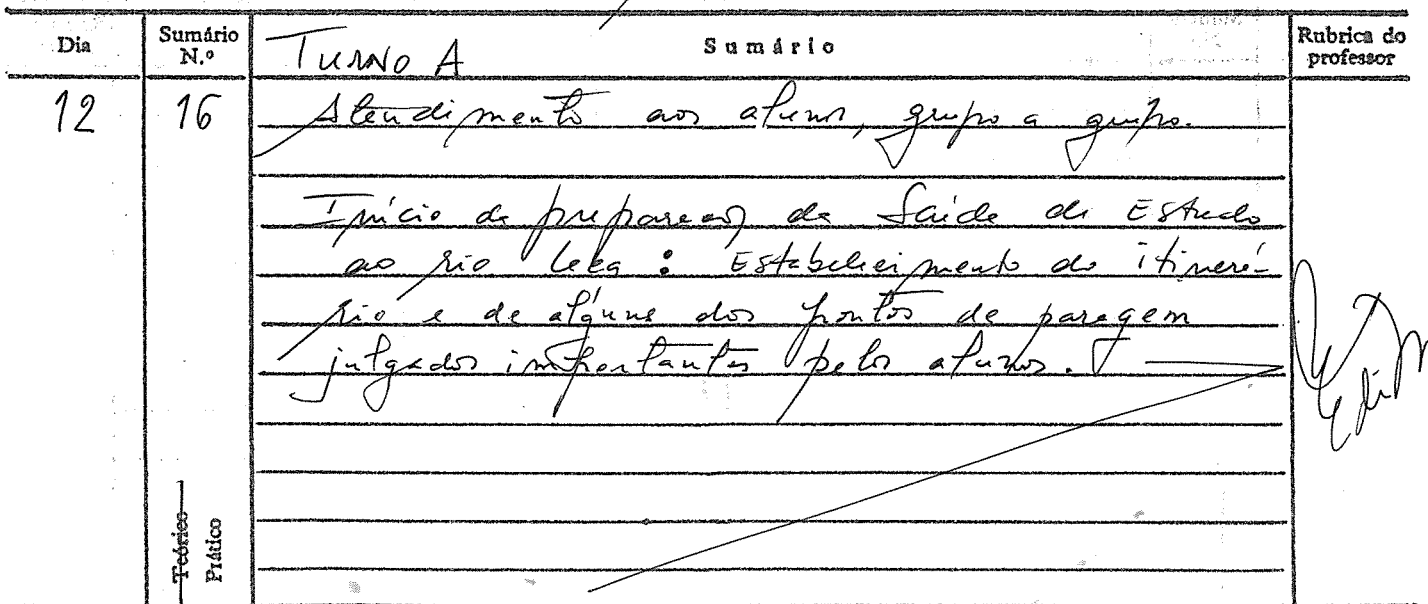 Dia Sumário N.º Sumário Rubrica do professor
TURNO A
12 16 Atendimento aos alunos, grupo a grupo.
Início da preparação da Saída de Estudo
ao rio Leça : Estabelecimento do itinerá-
rio e de alguns dos pontos de paragem
julgados importantes pelos alunos.
Teórico
Prático